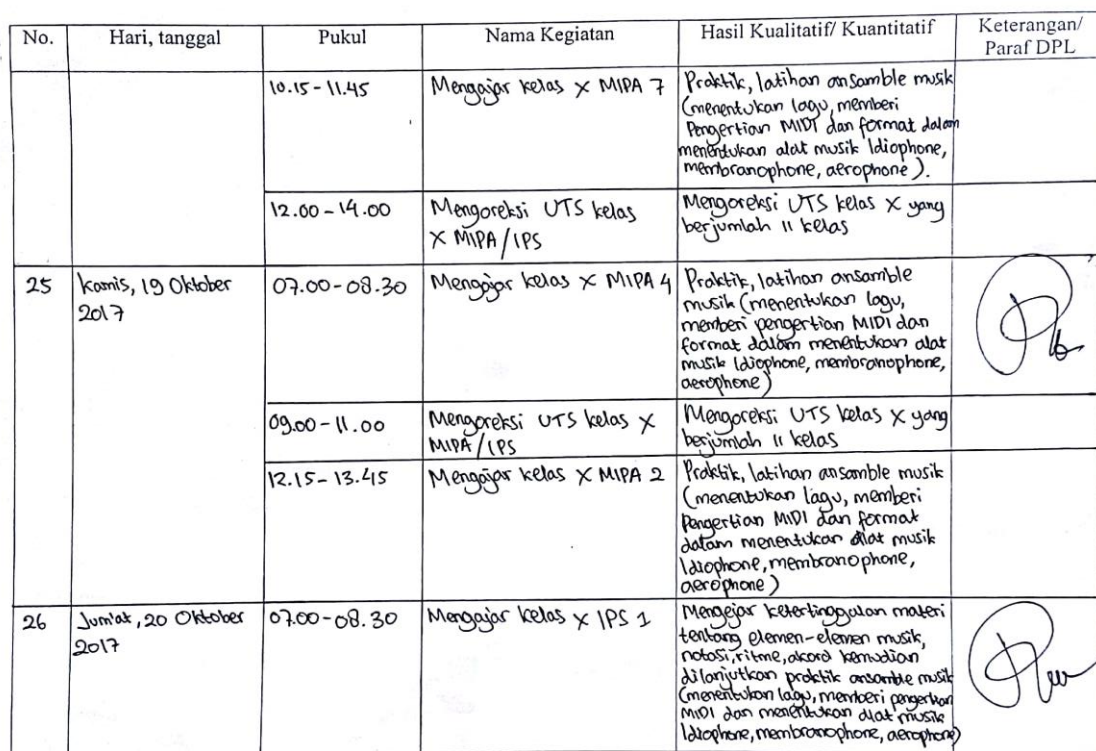 No.
Hari, tanggal
Pukul
Nama Kegiatan
Hasil Kualitatif/ Kuantitatif
Keterangan/
Paraf DPL
10.15 - 11.45
Mengajar kelas X MIPA 7
Praktik, latihan ansamble musik
(menentukan lagu, memberi
Pengertian MIDI dan format dalam
menentukan alat musik Idiophone,
membranophone, aerophone).
12.00 - 14.00
Mengoreksi UTS kelas
X MIPA/IPS
Mengoreksi UTS kelas X yang
berjumlah 11 kelas
25
Kamis, 19 Oktober
2017
07.00 - 08.30
Mengajar kelas X MIPA 4
Praktik, latihan ansamble
musik (menentukan lagu,
memberi pengertian MIDI dan
format dalam menentukan alat
musik Idiophone, membranophone,
aerophone)
09.00 - 11.00
Mengoreksi UTS kelas X
MIPA/IPS
Mengoreksi UTS kelas X yang
berjumlah 11 kelas
12.15 - 13.45
Mengajar kelas X MIPA 2
Praktik, latihan ansamble musik
(menentukan lagu, memberi
Pengertian MIDI dan format
dalam menentukan alat musik
Idiophone, membranophone,
aerophone)
26
Jumat, 20 Oktober
2017
07.00 - 08.30
Mengajar kelas X IPS 1
Mengejar ketertinggalan materi
tentang elemen-elemen musik,
notasi, ritme, akord kemudian
dilanjutkan praktik ansamble musik
(menentukan lagu, memberi pengertian
MIDI dan menentukan alat musik
Idiophone, membranophone, aerophone)